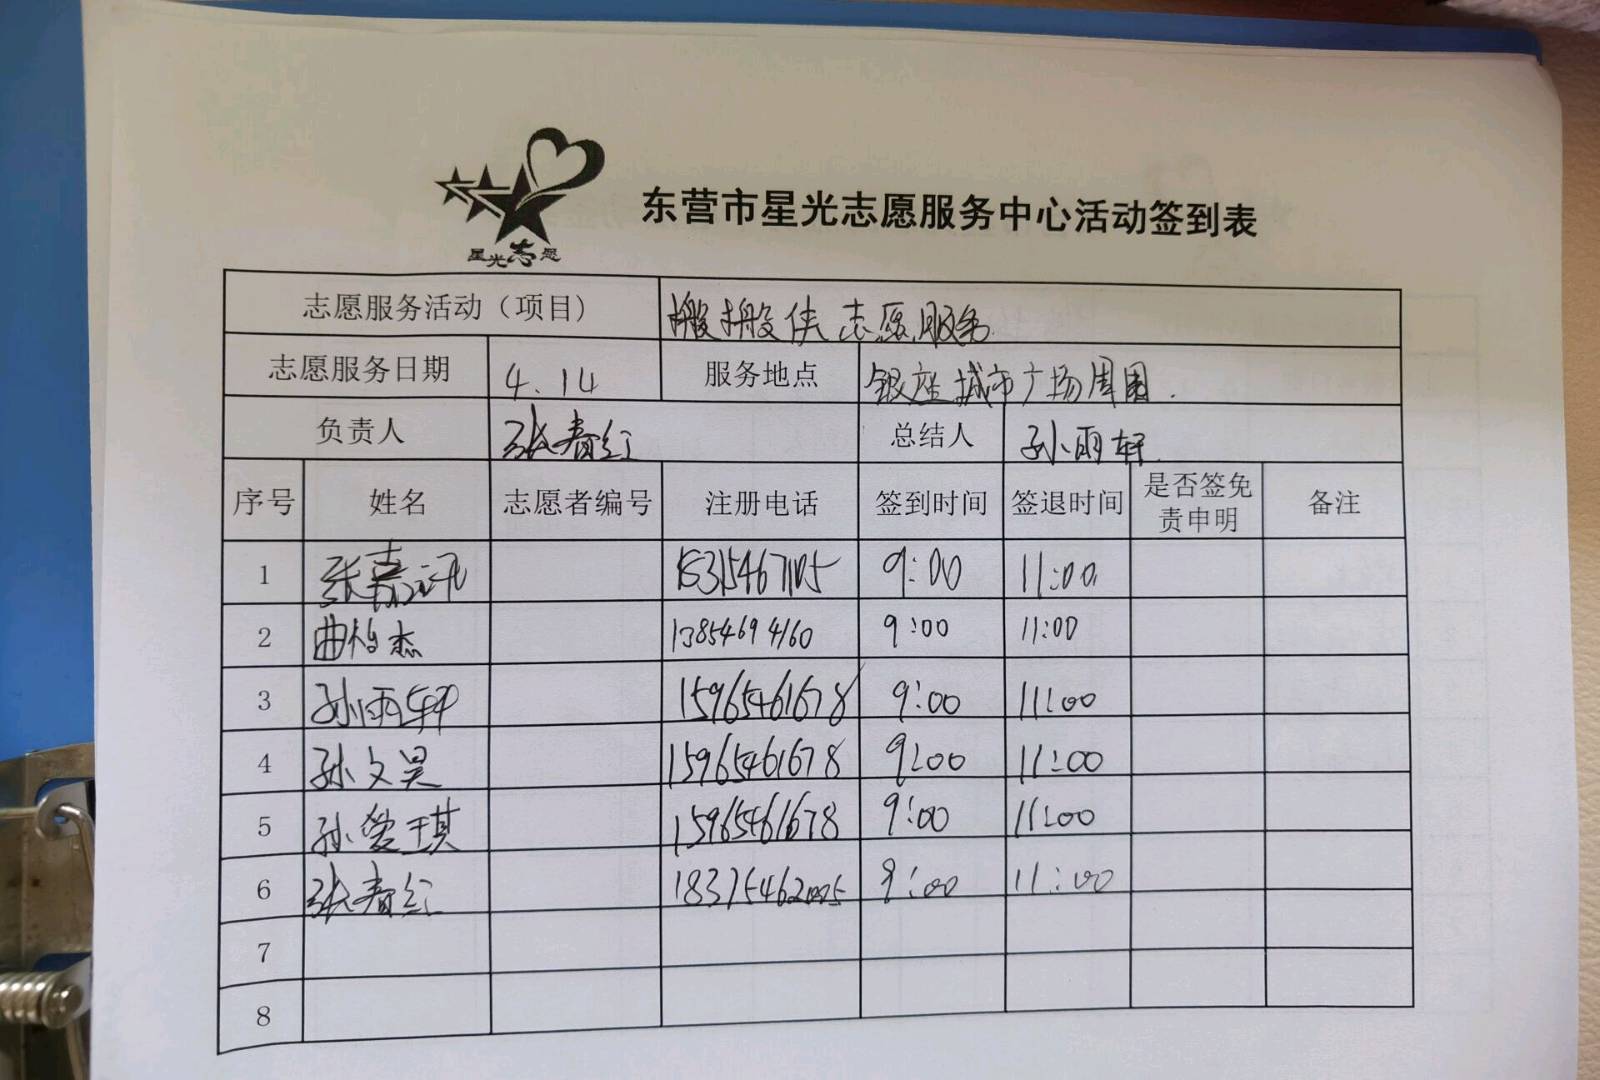 星光志愿
东营市星光志愿服务中心活动签到表
志愿服务活动（项目） 搬搬侠志愿服务
志愿服务日期 4.14 服务地点 银座城市广场周围.
负责人 张春红 总结人 孙雨轩
序号 姓名 志愿者编号 注册电话 签到时间 签退时间 是否签免责申明 备注
1 张嘉讯 9:00 11:00
2 曲柏杰 13854694160 9:00 11:00
3 孙雨轩 15965461678 9:00 11:00
4 孙文昊 15965461678 9:00 11:00
5 孙爱琪 15965461678 9:00 11:00
6 张春红 9:00 11:00
7
8